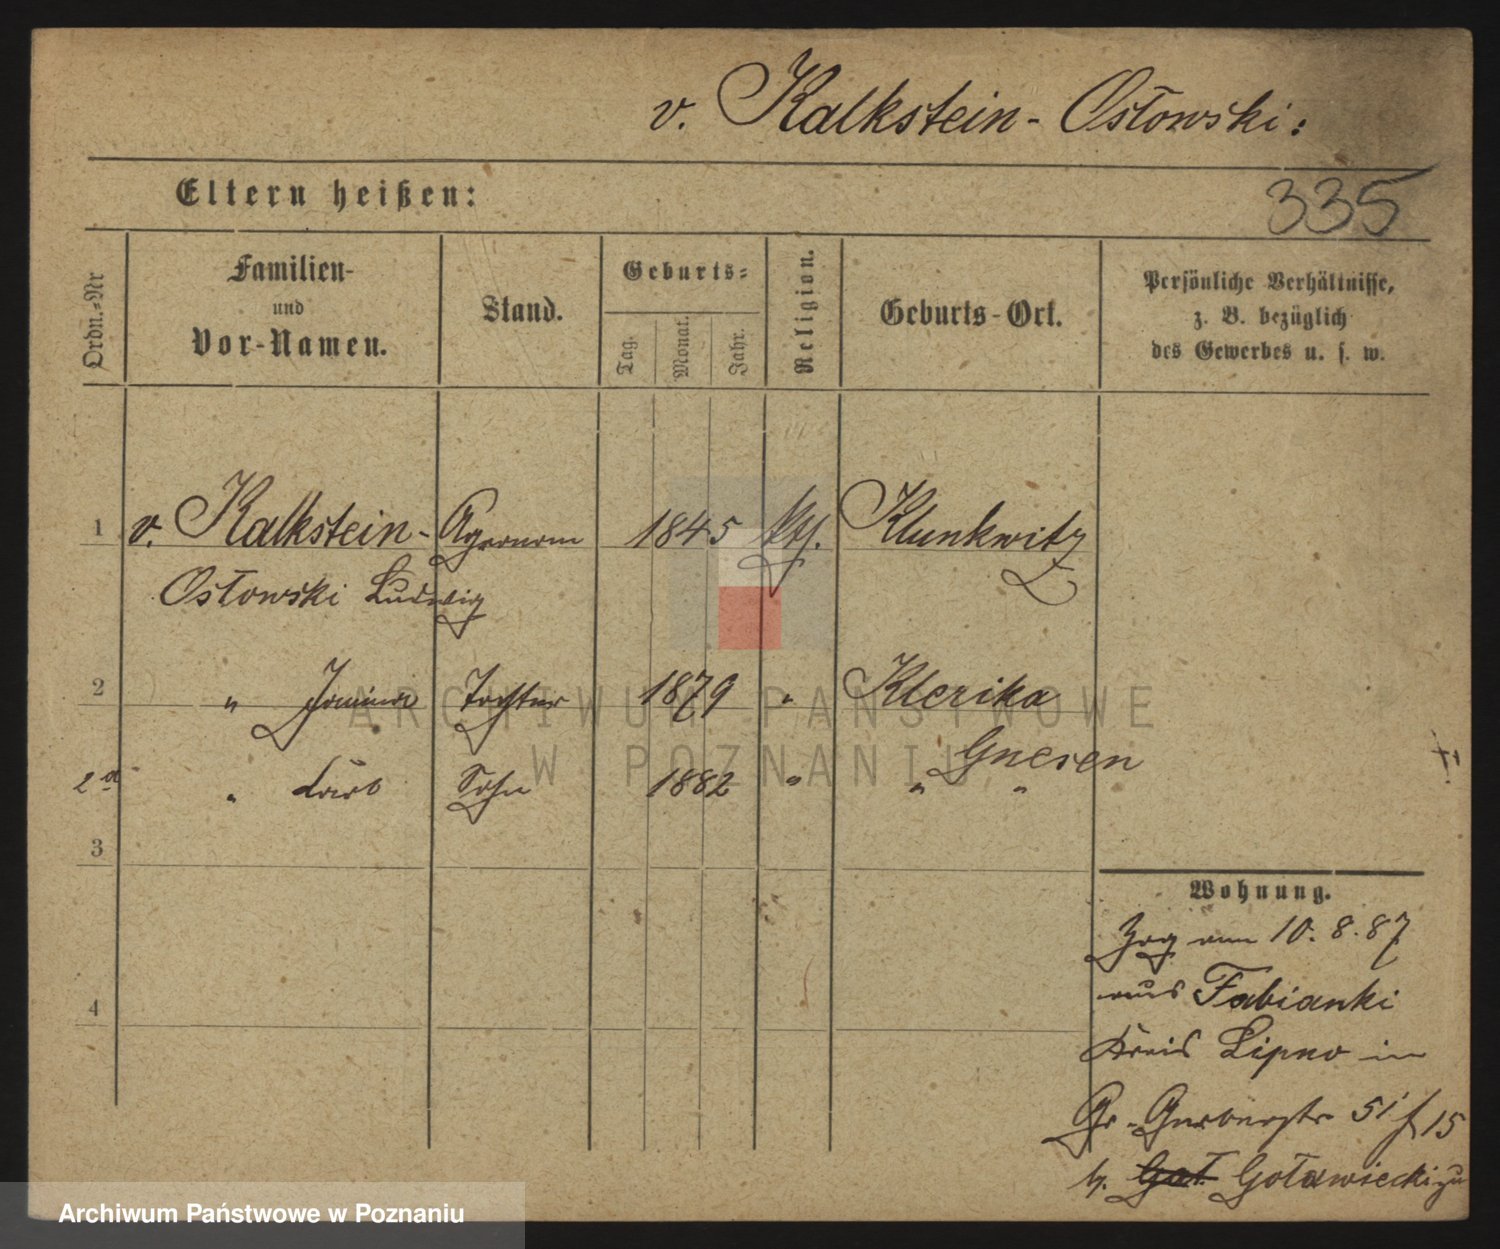 v. Kalkstein-Osłowski:
Eltern heißen:
335
Ordn.-Nr
Familien-
und
Vor-Namen.
Stand.
Geburts-
Tag.
Monat.
Jahr.
Religion.
Geburts-Ort.
Persönliche Verhältnisse,
z. B. bezüglich
des Gewerbes u. s. w.
1 v. Kalkstein- Agronom 1845 kth. Klunkwitz
Osłowski Ludwig
2 " Janina Tochter 1879 " Klerika
Gnesen
2a " Sohn 1882 " " "
3
4
Wohnung.
Zog am 10. 8. 87
aus Fabianki
Kreis Lipno in
Gr. Gerberstr 51 15
b. Goł. Goławiecki zu
ARCHIWUM PAŃSTWOWE
W POZNANIU
Archiwum Państwowe w Poznaniu